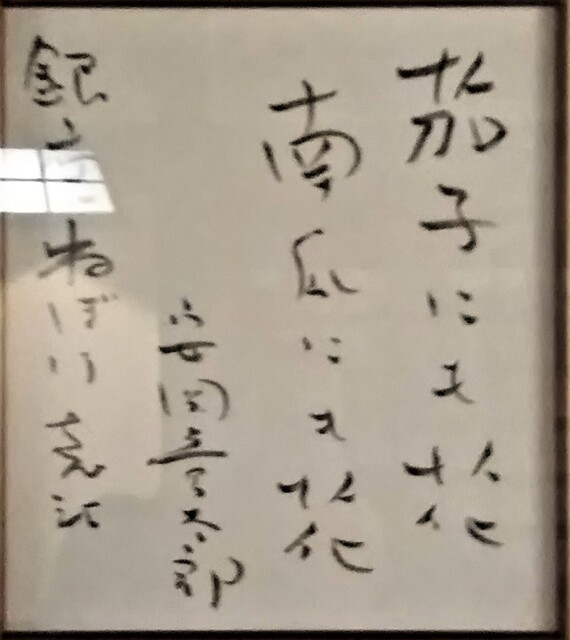 茄子にも花
南瓜にも花
安岡章太郎
銀座ねぼけ堯江